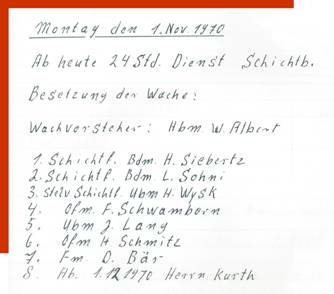 Montag den 1. Nov. 1970
Ab heute 24 Std. Dienst Schichtb.
Besetzung der Wache:
Wachvorsteher: Hbm. W. Albert
1. Schichtf. Bdm. H. Siebertz
2. Schichtf. Bdm. L. Sohni
3. stelv Schichtf. Ubm H. Wysk
4. Ofm. F. Schwamborn
5. Ubm J. Lang
6. Ofm H Schmitz
7. Fm. D. Bär
8. Ab. 1.12 1970 Herrn Kurth